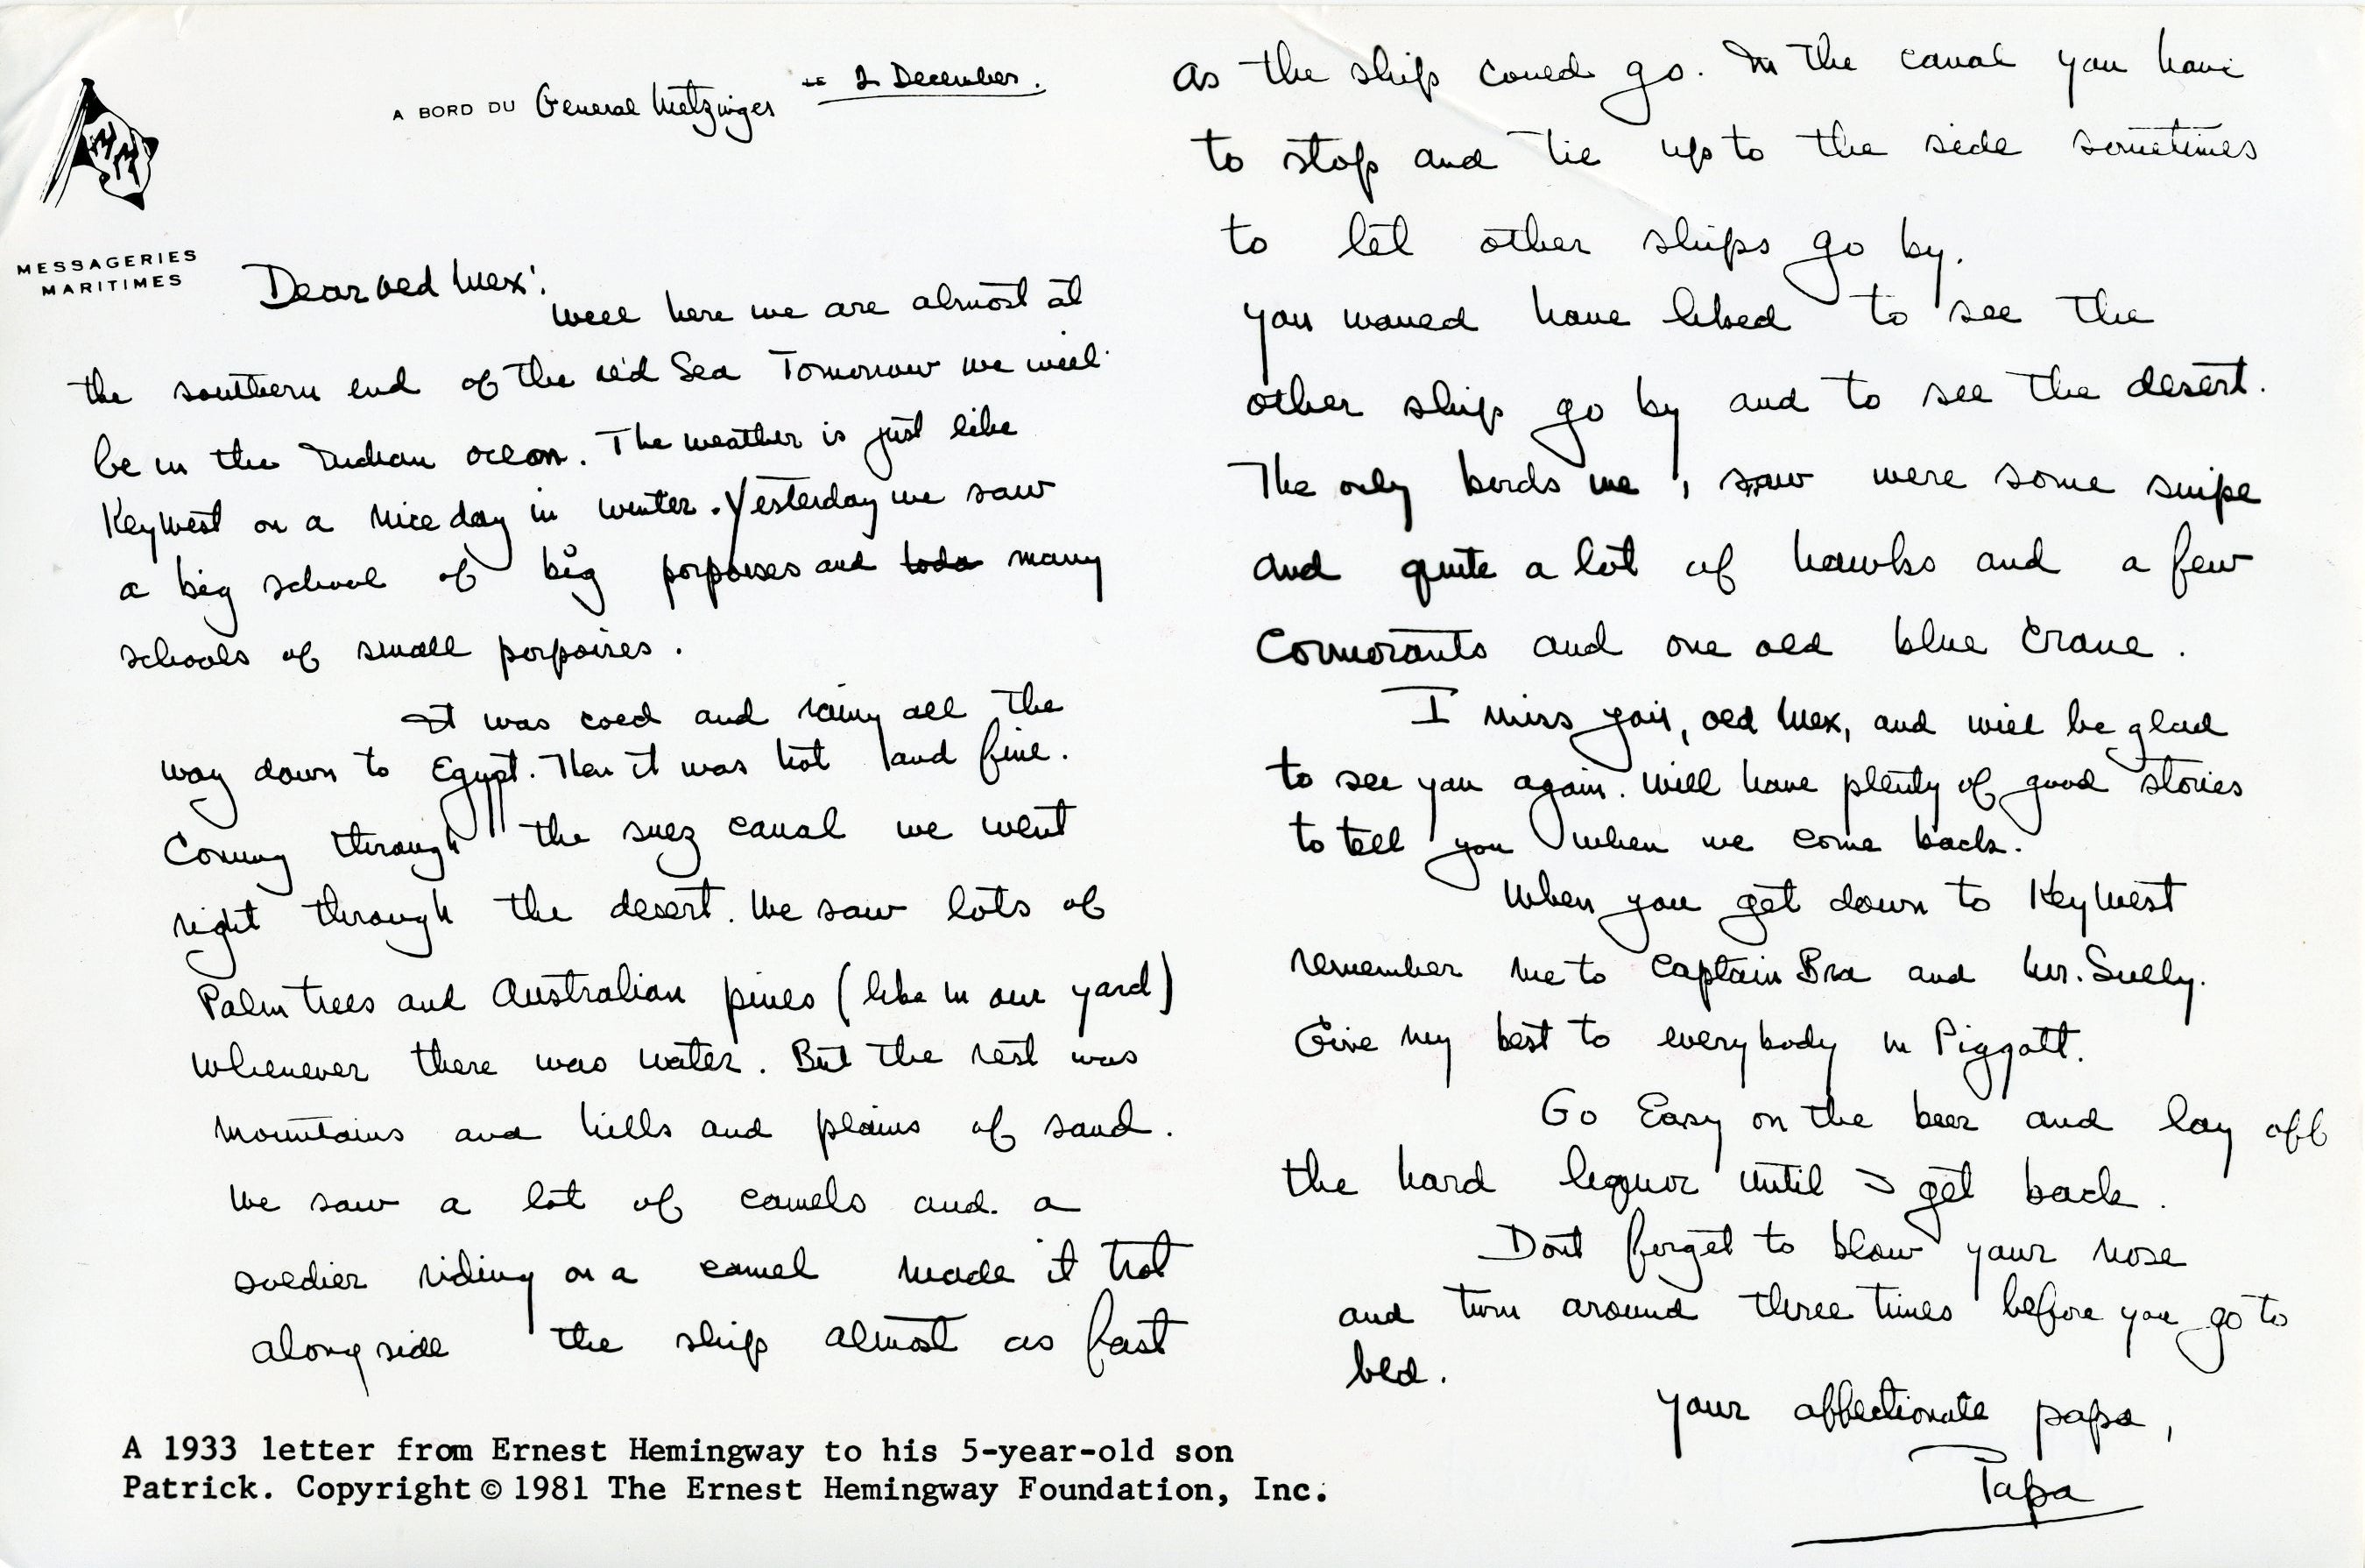 A BORD DU General Metzinger -- 2 December.
MM
MESSAGERIES
MARITIMES
Dear old Mex:
Well here we are almost at
the southern end of the red Sea Tomorrow we will
be in the Indian ocean. The weather is just like
Key West on a nice day in winter. Yesterday we saw
a big school of big porpoises and toda many
schools of small porpoises.
It was cold and rainy all the
way down to Egypt. Then it was hot and fine.
Coming through the suez canal we went
right through the desert. We saw lots of
Palm trees and Australian pines (like in our yard)
whenever there was water. But the rest was
mountains and hills and plains of sand.
We saw a lot of camels and a
soldier riding on a camel made it trot
alongside the ship almost as fast
as the ship could go. In the canal you have
to stop and tie up to the side sometimes
to let other ships go by.
you would have liked to see the
other ship go by and to see the desert.
The only birds we saw were some snipe
and quite a lot of hawks and a few
Cormorants and one old blue crane.
I miss you, old Mex, and will be glad
to see you again. Will have plenty of good stories
to tell you when we come back.
When you get down to Key West
remember me to Captain Bra and Mr. Sully.
Give my best to everybody in Piggott.
Go Easy on the beer and lay off
the hard liquor until I get back.
Dont forget to blow your nose
and turn around three times before you go to
bed.
your affectionate papa,
Papa
A 1933 letter from Ernest Hemingway to his 5-year-old son
Patrick. Copyright © 1981 The Ernest Hemingway Foundation, Inc.